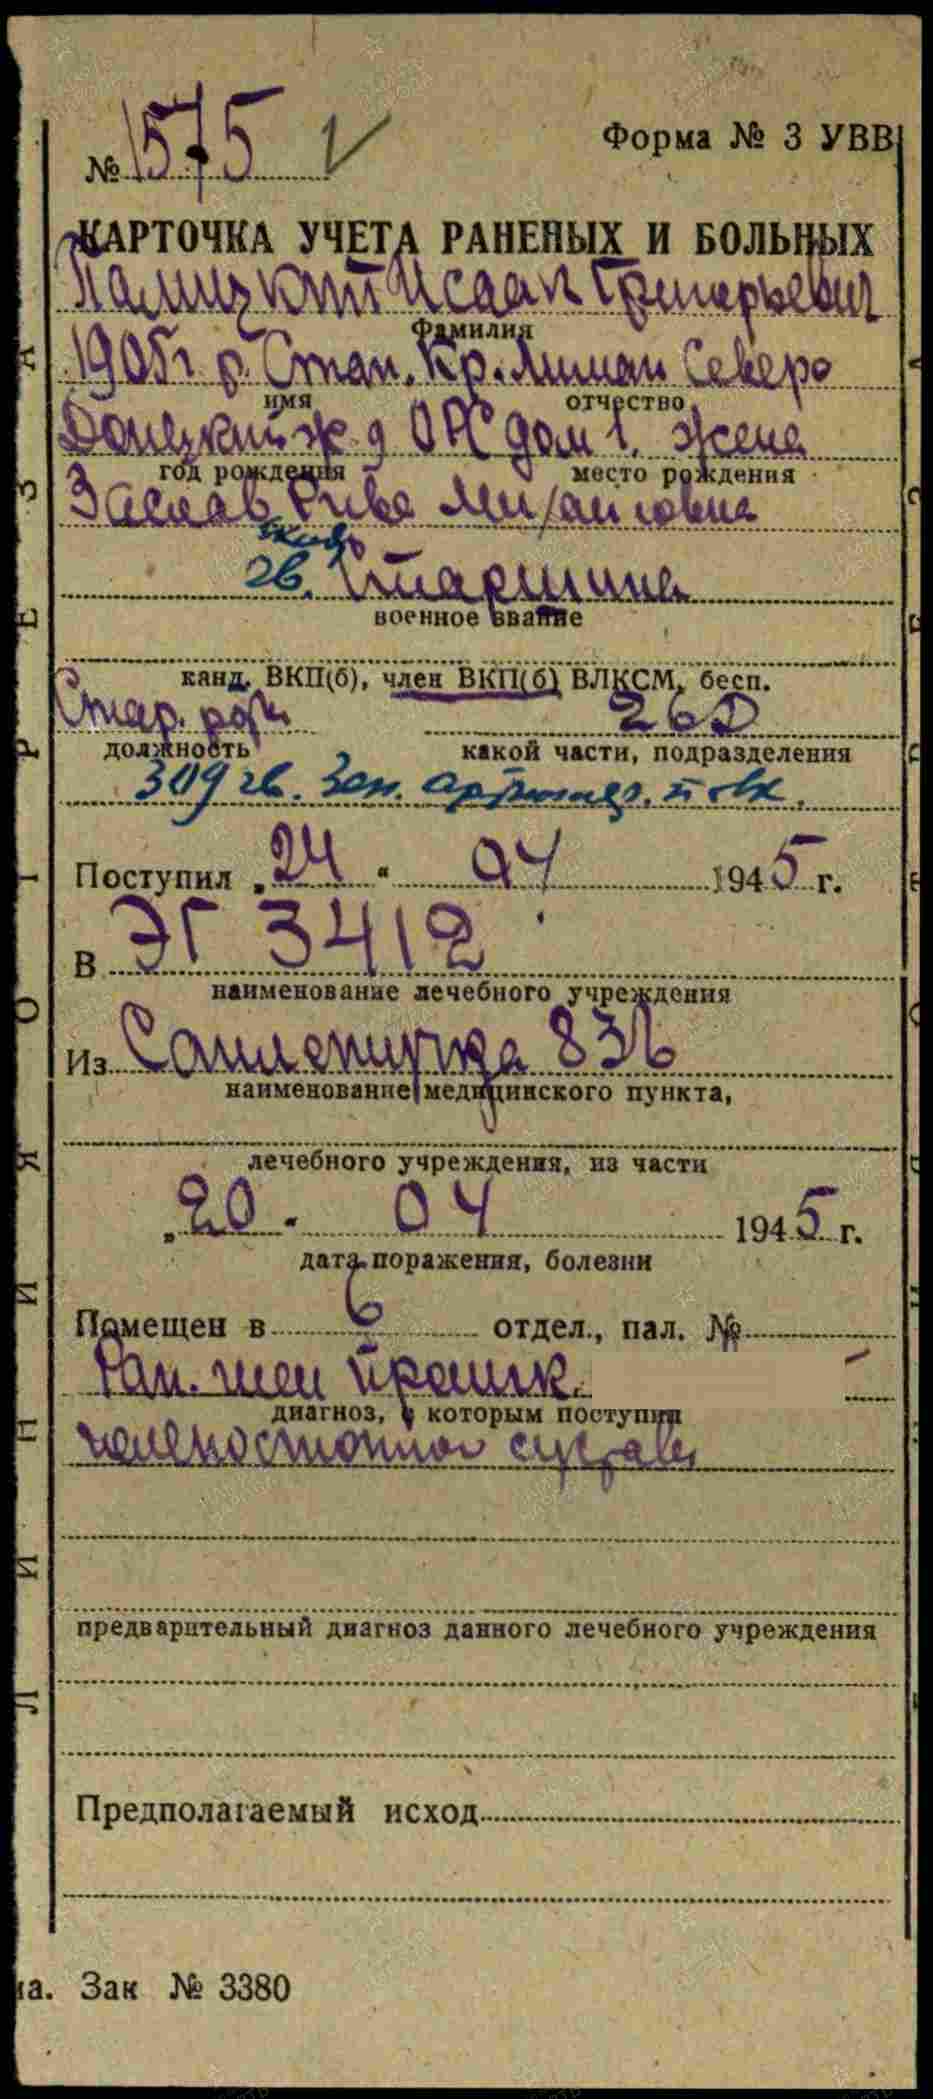 Форма № 3 УВВ
№ 1575
КАРТОЧКА УЧЕТА РАНЕНЫХ И БОЛЬНЫХ
Исаак Григорьевич
Фамилия
1905 г р. Стан. Кр. Лиман Северо
имя отчество
Донецкий ж д ОРС дом 1. Жена
год рождения место рождения
Заслав Рива Михайловна
гв. Старшина
военное звание
канд. ВКП(б), член ВКП(б) ВЛКСМ, бесп.
Стар.
должность какой части, подразделения
309 гв. Зен. полк.
Поступил „24“ 04 1945 г.
В ЭГ 3412
наименование лечебного учреждения
Из Санлетучка
наименование медицинского пункта,
лечебного учреждения, из части
„20“ 04 1945 г.
дата поражения, болезни
Помещен в 6 отдел., пал. №
Ран. шеи
диагноз, с которым поступил
челюстного сустава
предварительный диагноз данного лечебного учреждения
Предполагаемый исход
на. Зак № 3380
ЛИНИЯ ОТРЕЗА